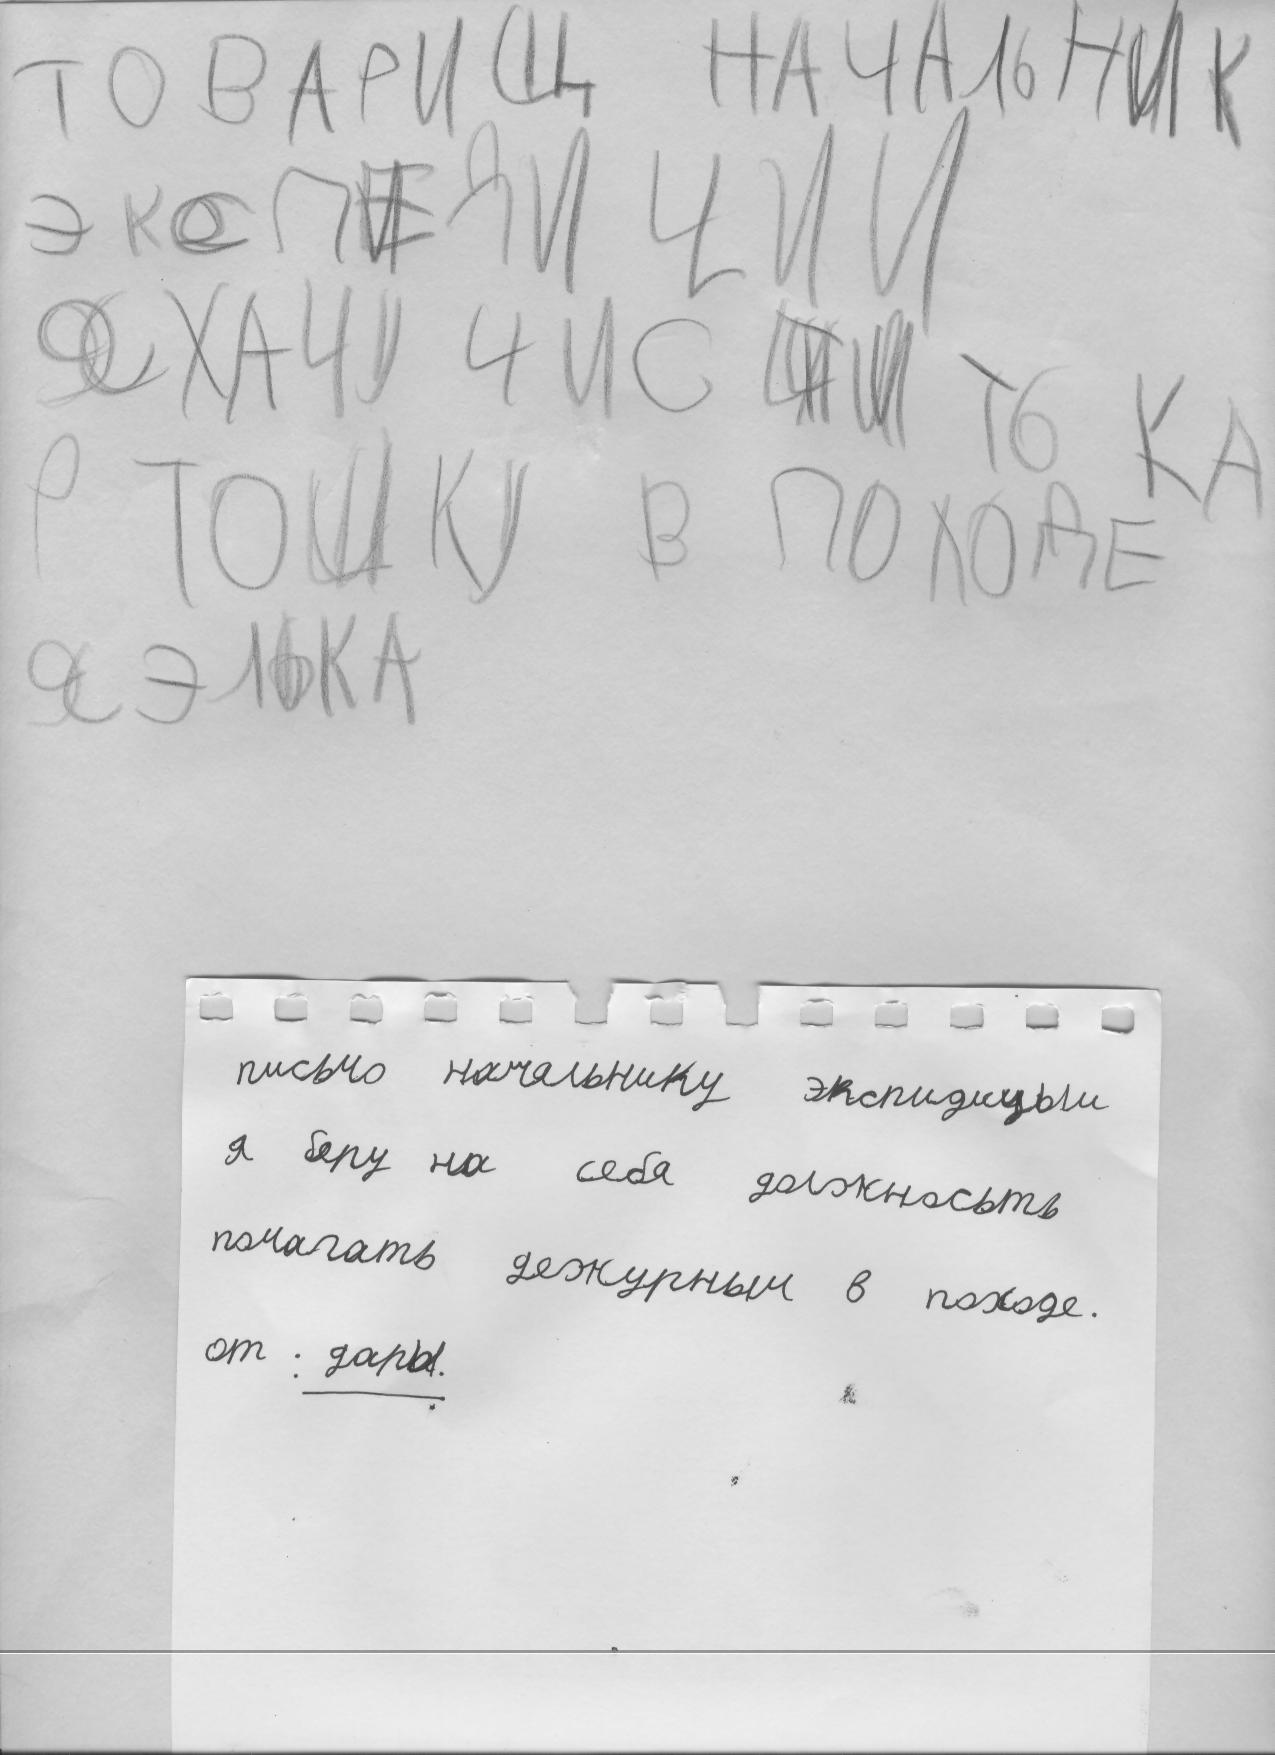 ТОВАРИЩ НАЧАЛЬНИК
ЭКСПЕДИЦИИ
Я ХАЧУ ЧИСТИТЬ КА
РТОШКУ В ПОХОДЕ
Я ЭЛЬКА
письмо начальнику экспидицыи
я беру на себя должносьть
помагать дежурным в походе.
от : дары.